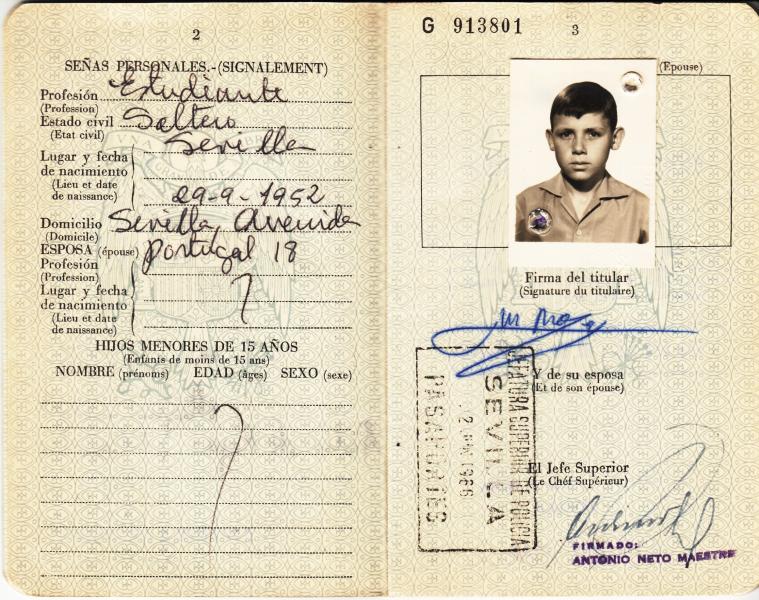 2
SEÑAS PERSONALES.-(SIGNALEMENT)
Profesión Estudiante
(Profession)
Estado civil Soltero
(Etat civil)
Sevilla
Lugar y fecha
de nacimiento
(Lieu et date
de naissance)
29-9-1952
Domicilio Sevilla, Avenida
(Domicile)
ESPOSA (épouse) Portugal 18
Profesión
(Profession)
Lugar y fecha
de nacimiento
(Lieu et date
de naissance)
HIJOS MENORES DE 15 AÑOS
(Enfants de moins de 15 ans)
NOMBRE (prénoms) EDAD (âges) SEXO (sexe)
G 913801
3
(Epouse)
Firma del titular
(Signature du titulaire)
JEFATURA SUPERIOR DE POLICIA
SEVILLA
1966
PASAPORTES
Y de su esposa
(Et de son épouse)
El Jefe Superior
(Le Chéf Supérieur)
FIRMADO:
ANTONIO NETO MAESTRE